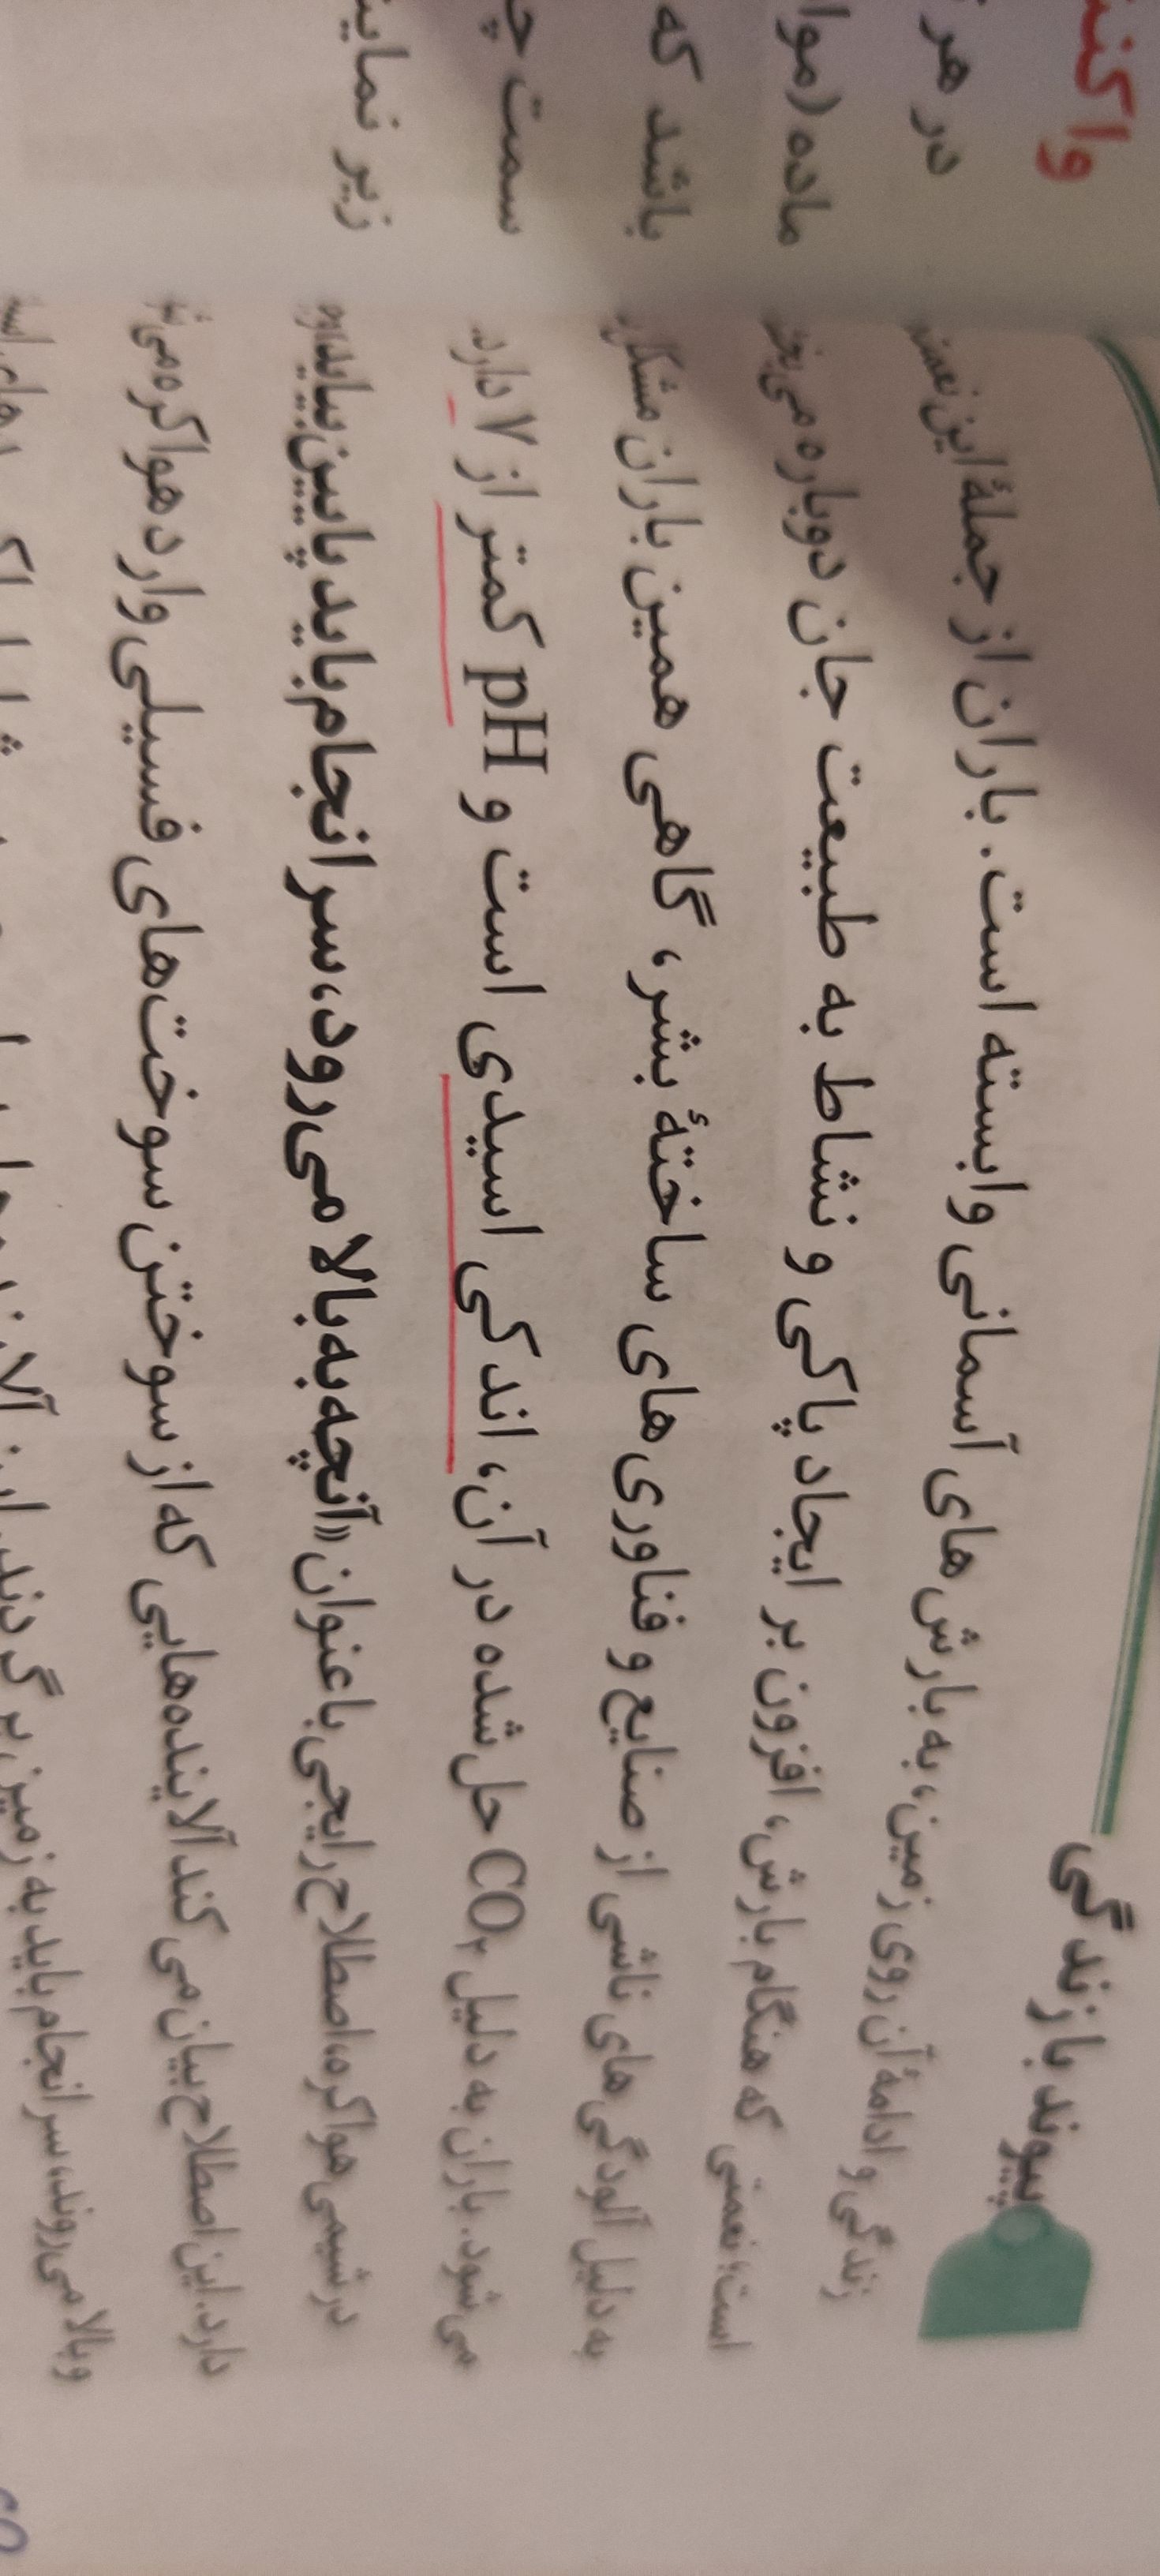 پیوند با زندگی
زندگی و ادامهٔ آن روی زمین، به بارش‌های آسمانی وابسته است. باران از جملهٔ این
است؛ نعمتی که هنگام بارش، افزون بر ایجاد پاکی و نشاط به طبیعت جان دوباره
به دلیل آلودگی‌های ناشی از صنایع و فناوری‌های ساختهٔ بشر، گاهی همین باران
می‌شود. باران به دلیل CO₂ حل شده در آن، اندکی اسیدی است و pH کمتر از ۷ دارد.
در شیمی هواکره، اصطلاح رایجی با عنوان «آنچه به بالا می‌رود، سرانجام باید پایین بیاید»
دارد. این اصطلاح بیان می‌کند آلاینده‌هایی که از سوختن سوخت‌های فسیلی وارد هواکره
و بالا می‌روند، سرانجام باید به زمین برگردند. این
در هر
ماده (موا
باشد که
سمت چ
زیر نمای